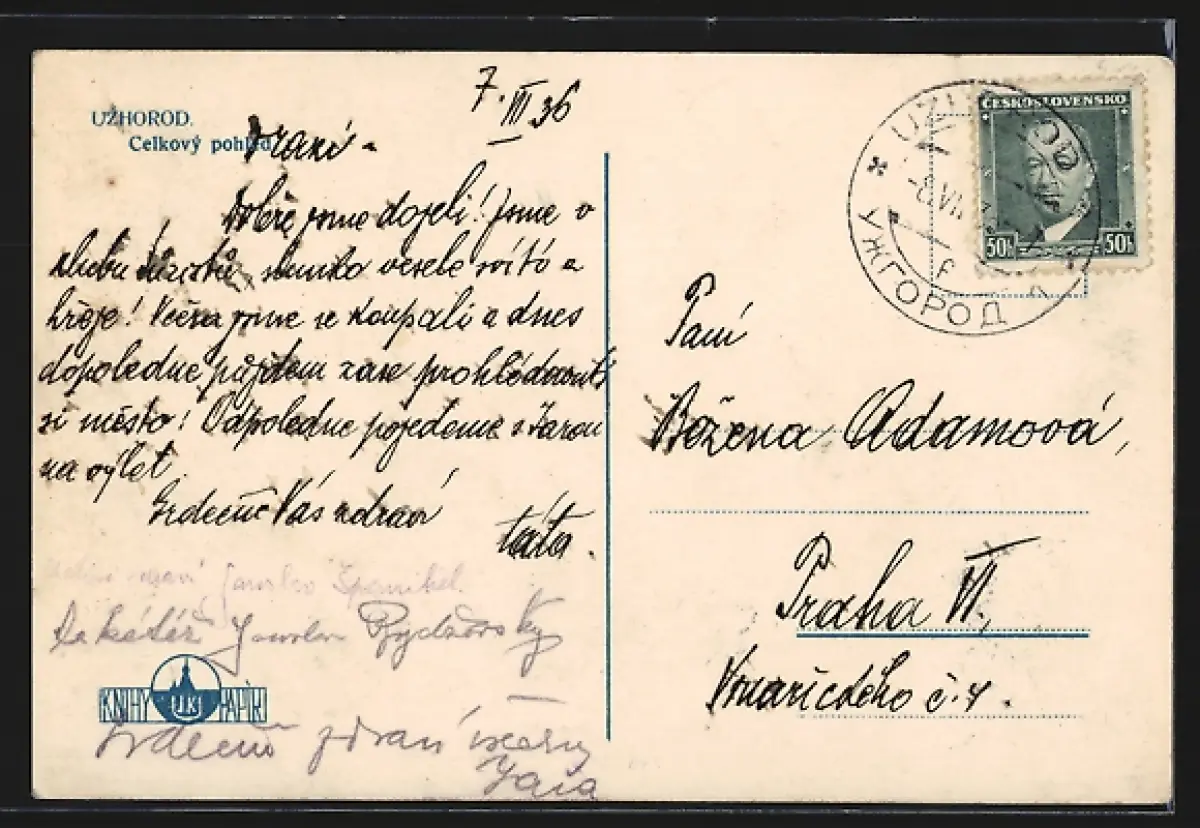 7. VII 36
UŽHOROD.
Celkový pohled
Drazí -
Dobře jsme dojeli! Jsme v
klubu slunko vesele svítí a
hřeje! Včera jsme se koupali a dnes
dopoledne půjdem zase prohlédnouti
si město! Odpoledne pojedeme s Jarou
na výlet.
Srdečně Vás zdraví
táta.
Jaroslav
Jaroslav
KNIHY UKJ PAPÍR
Srdečně zdraví všecky
Jara
ČESKOSLOVENSKO
50h 50h
UŽHOROD
УЖГОРОД
Paní
Božena Adamová,
Praha VI.
Vnuaříckého č. 4.